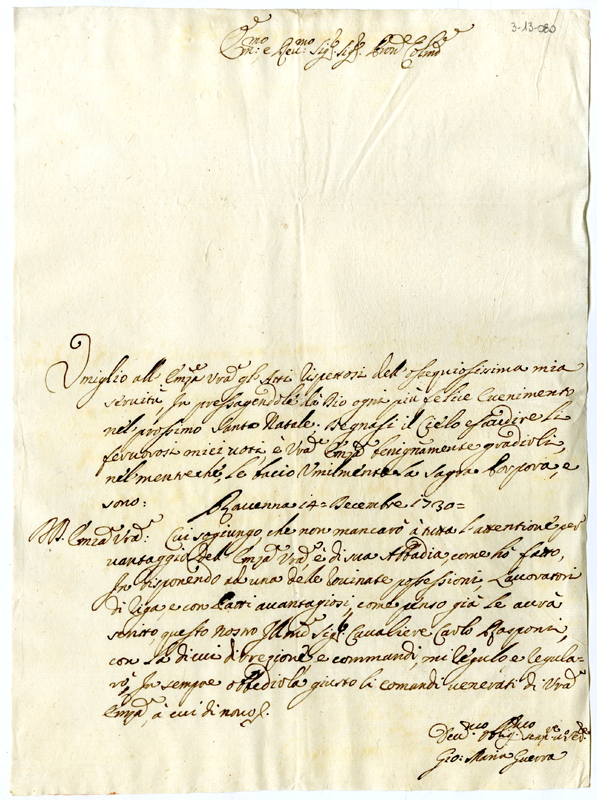 3-13-080
Em:mo e Reu:mo Sig:r Sig:r Pron:e Colmo
Vmiglio all Emza Vra gli Atti rispettosi dell osseguiosissima mia
seruitù, In pressagendole da Dio ogni più felice Euenimento
nel prossimo Santo Natale: Degnasi il Cielo esaudire li
feruorosi miei uoti, è Vra Emza benignamente gradirli,
nel mentre che, le bacio Vmilmente la Sagra Porpora, e
sono: Rauenna 14= Decembre 1730=
Emza Vra: Cui sogiungo, che non mancarò à tutta l'attentione per
uantaggio dell Emza Vra è di sua Abbadia, come hò fatto,
In disponendo ad una delle rouinate possessioni, Lauoratori
di riga e con patti auantagiosi, come penso già le aurà
scritto questo nostro Sig:r Caualiere Carlo Rasponi,
con la di cui direzione e commandi, mi regulo e regula-
rò, In sempre obbedirla giusto li comandi uenerati di Vra
Emza, à cui di nouo
Gio: Maria Guerra